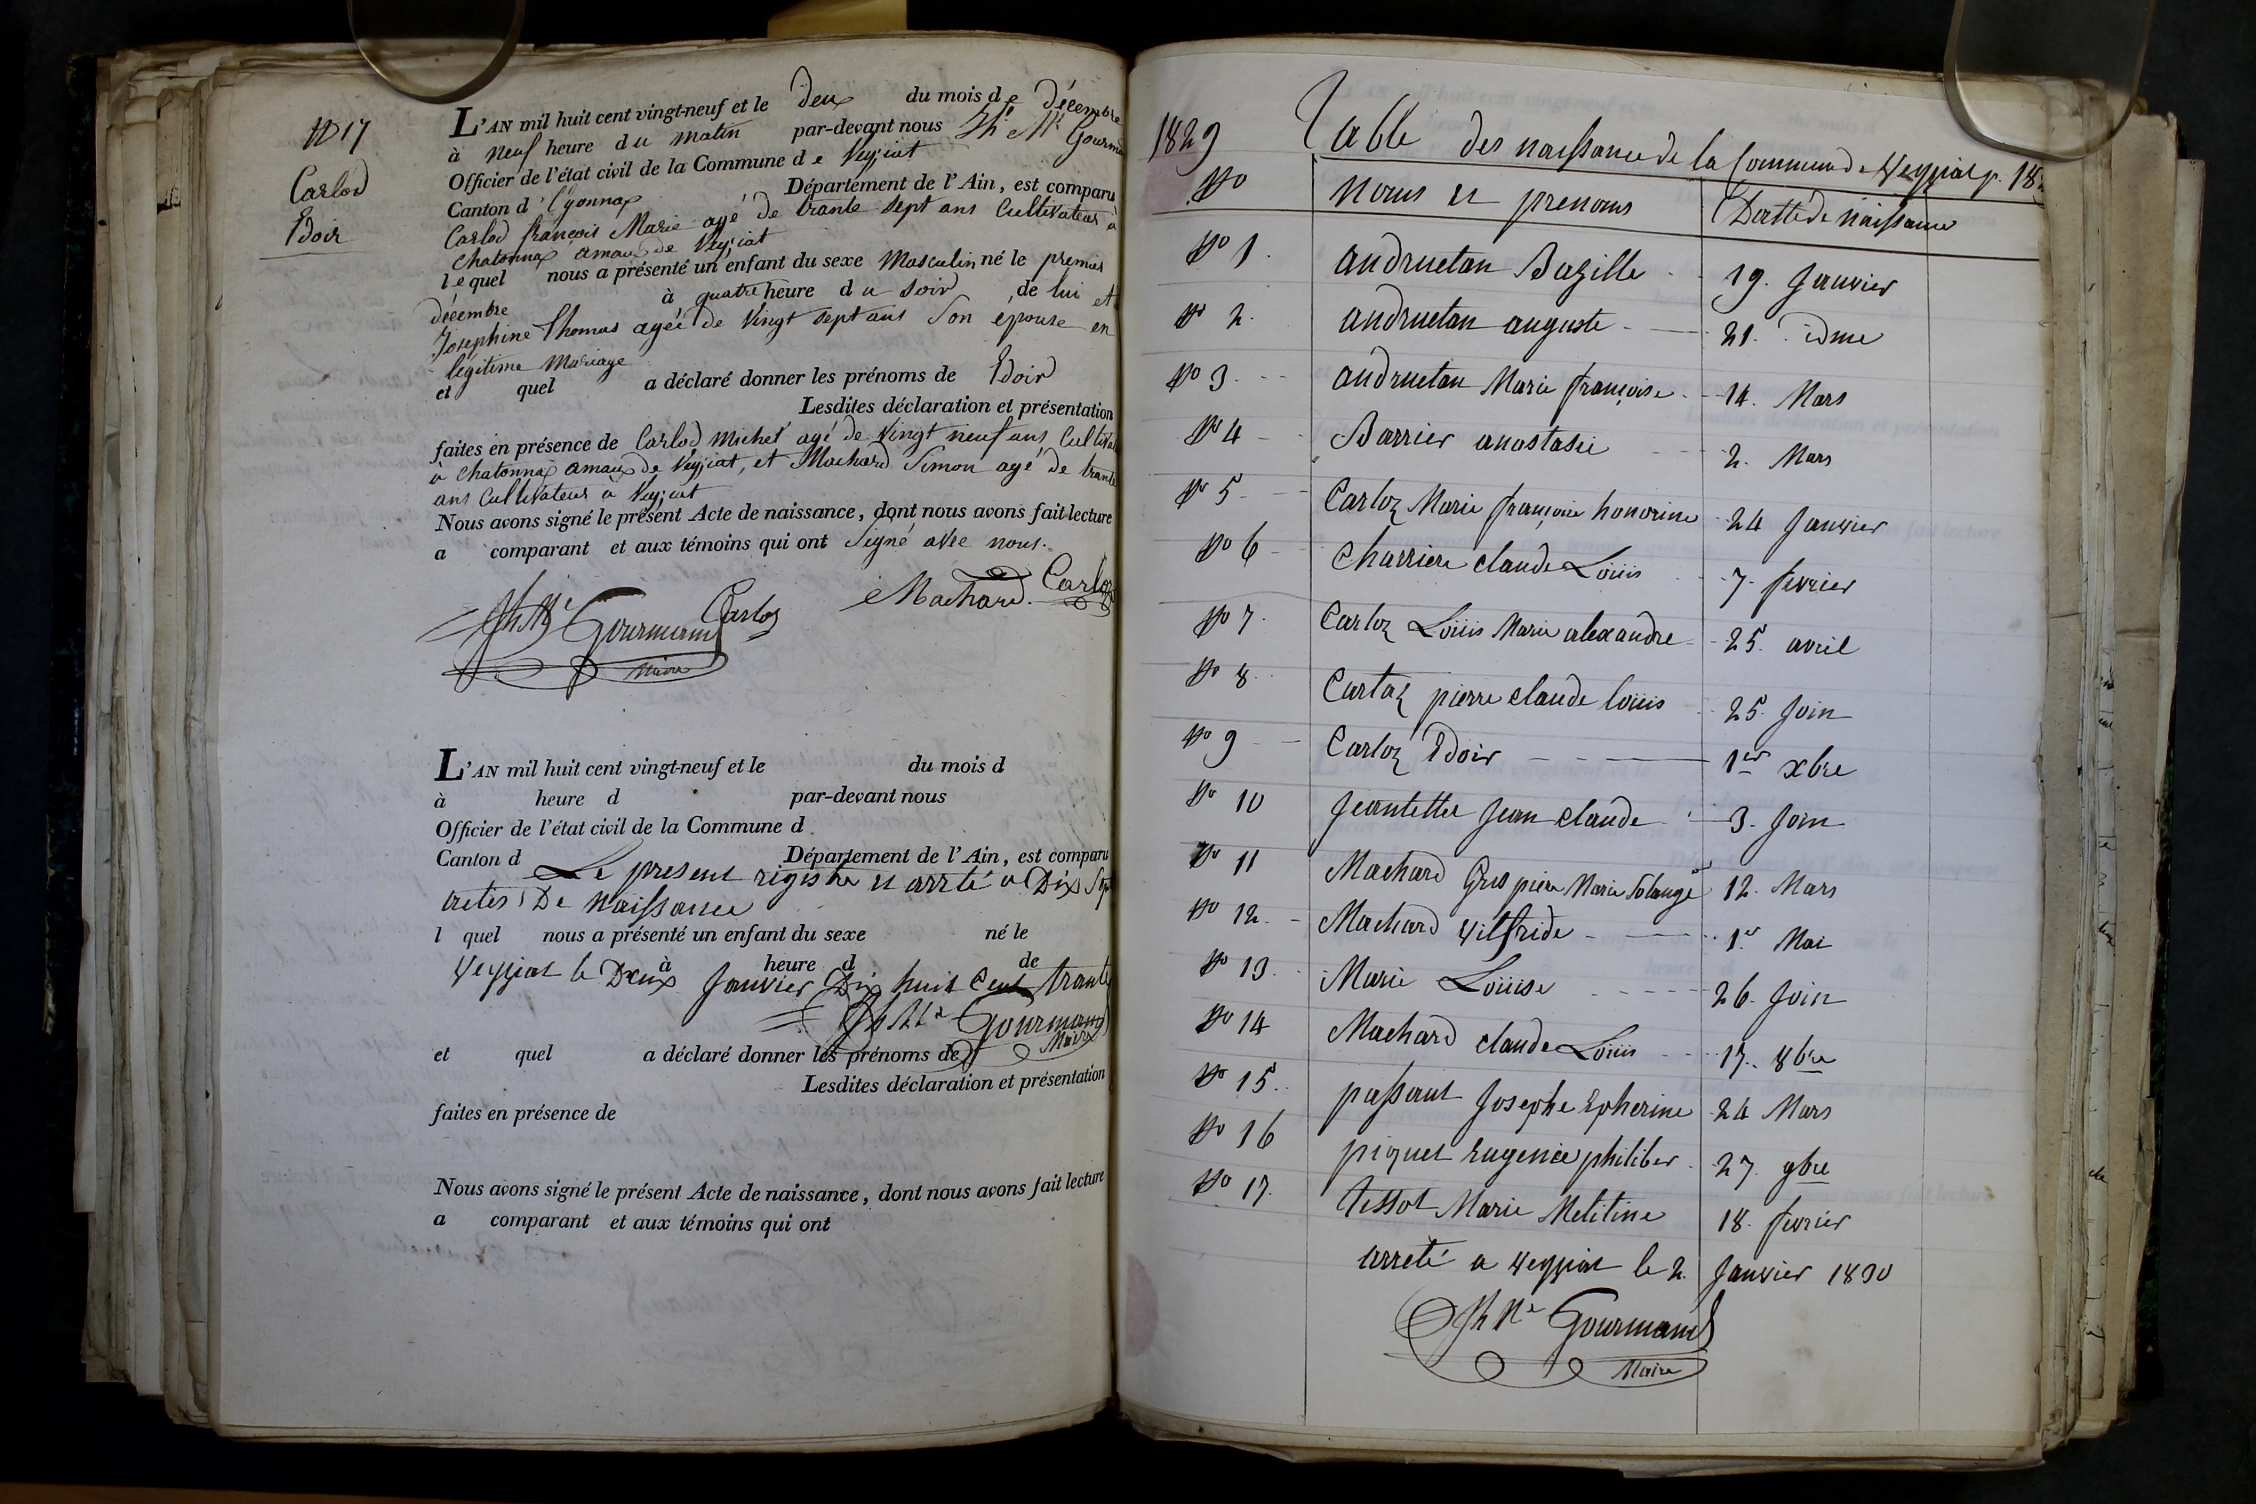 N° 17
Carlod
Edoir
L'AN mil huit cent vingt-neuf et le deux du mois de décembre
à neuf heure du matin par-devant nous Jh Me Gourmand
Officier de l'état civil de la Commune de Veyziat
Canton d'Oyonnax Département de l'Ain, est comparu
Carlod françois Marie agé de trante sept ans Cultivateur à
chatonnax amau de Veyziat
lequel nous a présenté un enfant du sexe Masculin né le premier
décembre à quatre heure du soir, de lui et
Josephine Thomas agée de Vingt sept ans Son épouse en
légitime Mariage
et quel a déclaré donner les prénoms de Edoir
Lesdites déclaration et présentation
faites en présence de Carlod Michel agé de Vingt neuf ans, Cultivat
à chatonnax amau de Veyziat, et Machard Simon agé de trante
ans Cultivateur à Veyziat
Nous avons signé le présent Acte de naissance, dont nous avons fait lecture
a comparant et aux témoins qui ont Signé avec nous.
Jh Me Gourmand Carloz Machard Carloz
Maire
L'AN mil huit cent vingt-neuf et le du mois d
à heure d par-devant nous
Officier de l'état civil de la Commune d
Canton d Département de l'Ain, est comparu
Le present registre et arrté a Dix Sep
actes De Naissance
l quel nous a présenté un enfant du sexe né le
à heure d de
Veyziat le Deux Janvier Dix huit Cent trante
Jh Me Gourmand
Maire
et quel a déclaré donner les prénoms de
Lesdites déclaration et présentation
faites en présence de
Nous avons signé le présent Acte de naissance, dont nous avons fait lecture
a comparant et aux témoins qui ont
1829 Table des naissance de la Commune de Veyziat p. 18
No Noms et prenoms Datte de naissance
No 1. andruetan Bazille 19. Janvier
No 2. andruetan auguste 21. idme
No 3 andruetan Marie françoise 14. Mars
No 4 Barrier anastasie 2. Mars
No 5 Carloz Marie françoise honorine 24 Janvier
No 6 Charriere claude Louis 7. fevrier
No 7. Carloz Louis Marie alexandre 25. avril
No 8 Cartaz pierre claude louis 25. Join
No 9 Carloz Edoir 1er xbre
No 10 Jeantettee Jean claude 3. Join
No 11 Machard Gros piere Marie Solange 12. Mars
No 12. Machard Vilfride 1er Mai
No 13. Marie Louise 26. Join
No 14 Machard claude Louis 17. 8bre
No 15. passaut Josephe Epherine 24 Mars
No 16 piquet Eugenie philiber 27. 9bre
No 17. tissot Marie Melitine 18. fevrier
arreté a Veyziat le 2. Janvier 1830
Jh Me Gourmand
Maire